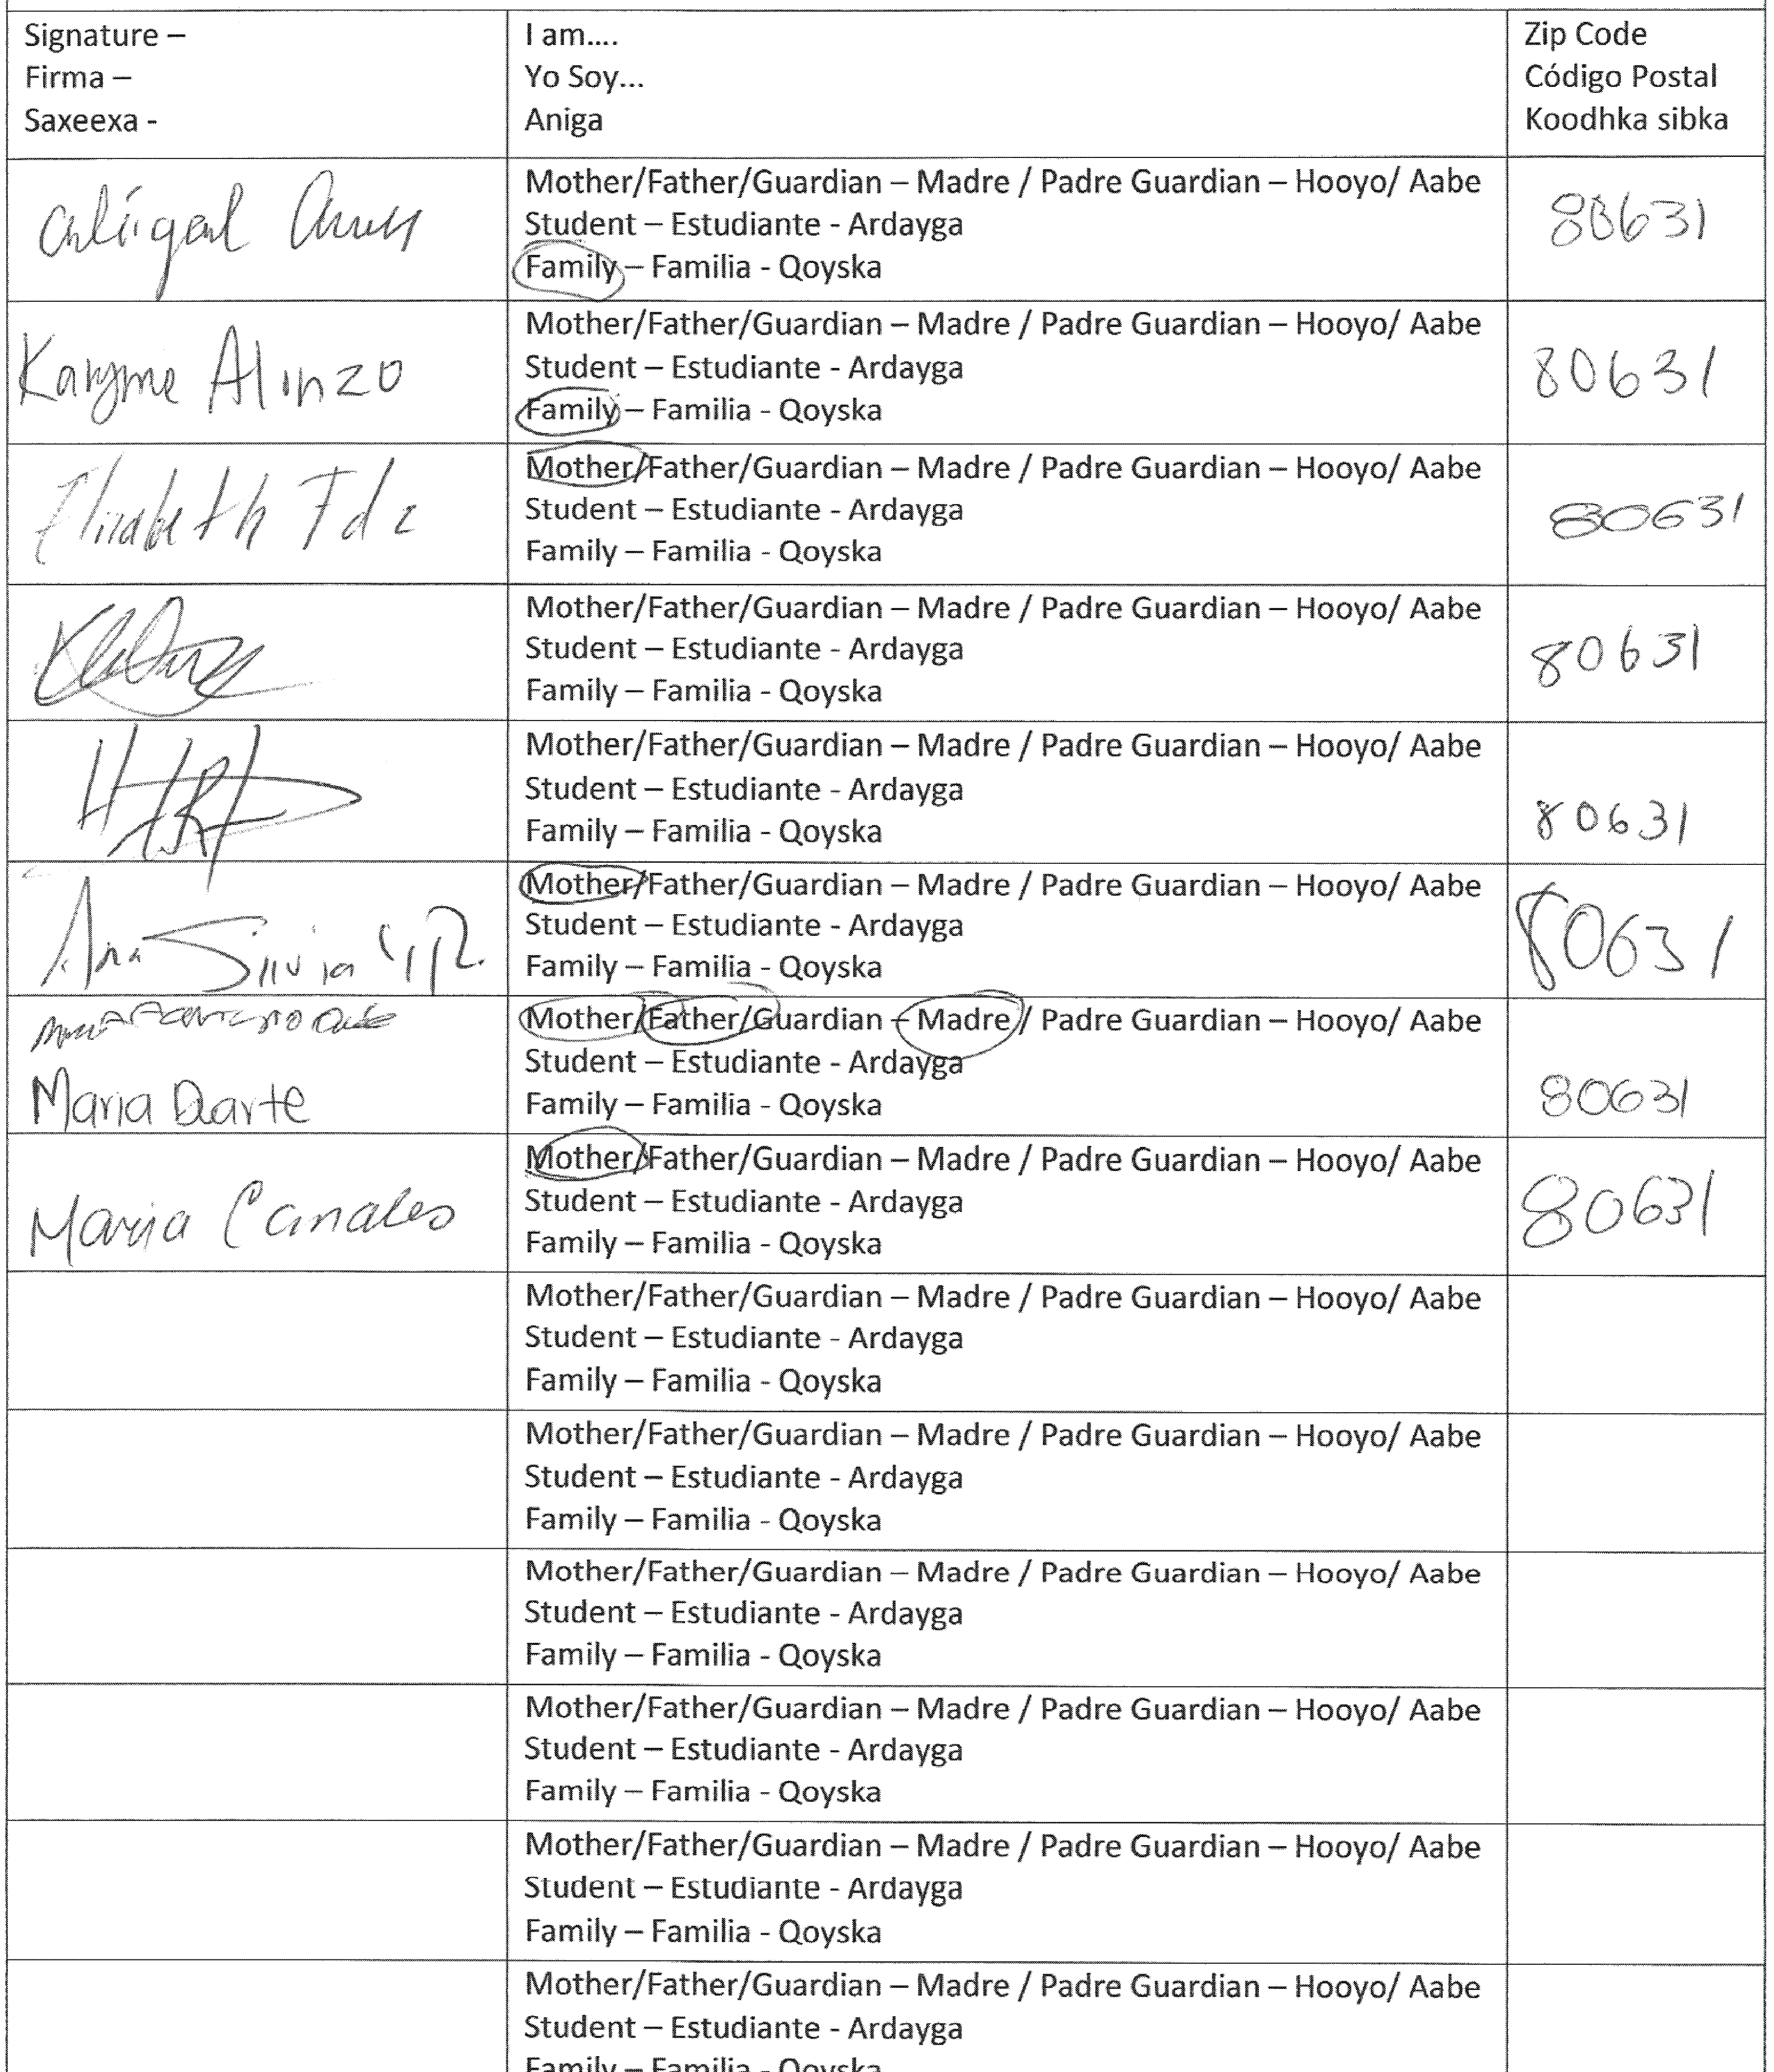 Signature –
Firma –
Saxeexa -
I am....
Yo Soy...
Aniga
Zip Code
Código Postal
Koodhka sibka
Mother/Father/Guardian – Madre / Padre Guardian – Hooyo/ Aabe
Student – Estudiante - Ardayga
Family – Familia - Qoyska
80631
Karyme Alinzo
Mother/Father/Guardian – Madre / Padre Guardian – Hooyo/ Aabe
Student – Estudiante - Ardayga
Family – Familia - Qoyska
80631
Elizabeth Fdz
Mother/Father/Guardian – Madre / Padre Guardian – Hooyo/ Aabe
Student – Estudiante - Ardayga
Family – Familia - Qoyska
80631
Mother/Father/Guardian – Madre / Padre Guardian – Hooyo/ Aabe
Student – Estudiante - Ardayga
Family – Familia - Qoyska
80631
Mother/Father/Guardian – Madre / Padre Guardian – Hooyo/ Aabe
Student – Estudiante - Ardayga
Family – Familia - Qoyska
80631
Ana Silvia
Mother/Father/Guardian – Madre / Padre Guardian – Hooyo/ Aabe
Student – Estudiante - Ardayga
Family – Familia - Qoyska
80631
Maria Duarte
Mother/Father/Guardian – Madre / Padre Guardian – Hooyo/ Aabe
Student – Estudiante - Ardayga
Family – Familia - Qoyska
80631
Maria Canales
Mother/Father/Guardian – Madre / Padre Guardian – Hooyo/ Aabe
Student – Estudiante - Ardayga
Family – Familia - Qoyska
80631
Mother/Father/Guardian – Madre / Padre Guardian – Hooyo/ Aabe
Student – Estudiante - Ardayga
Family – Familia - Qoyska
Mother/Father/Guardian – Madre / Padre Guardian – Hooyo/ Aabe
Student – Estudiante - Ardayga
Family – Familia - Qoyska
Mother/Father/Guardian – Madre / Padre Guardian – Hooyo/ Aabe
Student – Estudiante - Ardayga
Family – Familia - Qoyska
Mother/Father/Guardian – Madre / Padre Guardian – Hooyo/ Aabe
Student – Estudiante - Ardayga
Family – Familia - Qoyska
Mother/Father/Guardian – Madre / Padre Guardian – Hooyo/ Aabe
Student – Estudiante - Ardayga
Family – Familia - Qoyska
Mother/Father/Guardian – Madre / Padre Guardian – Hooyo/ Aabe
Student – Estudiante - Ardayga
Family – Familia - Qoyska